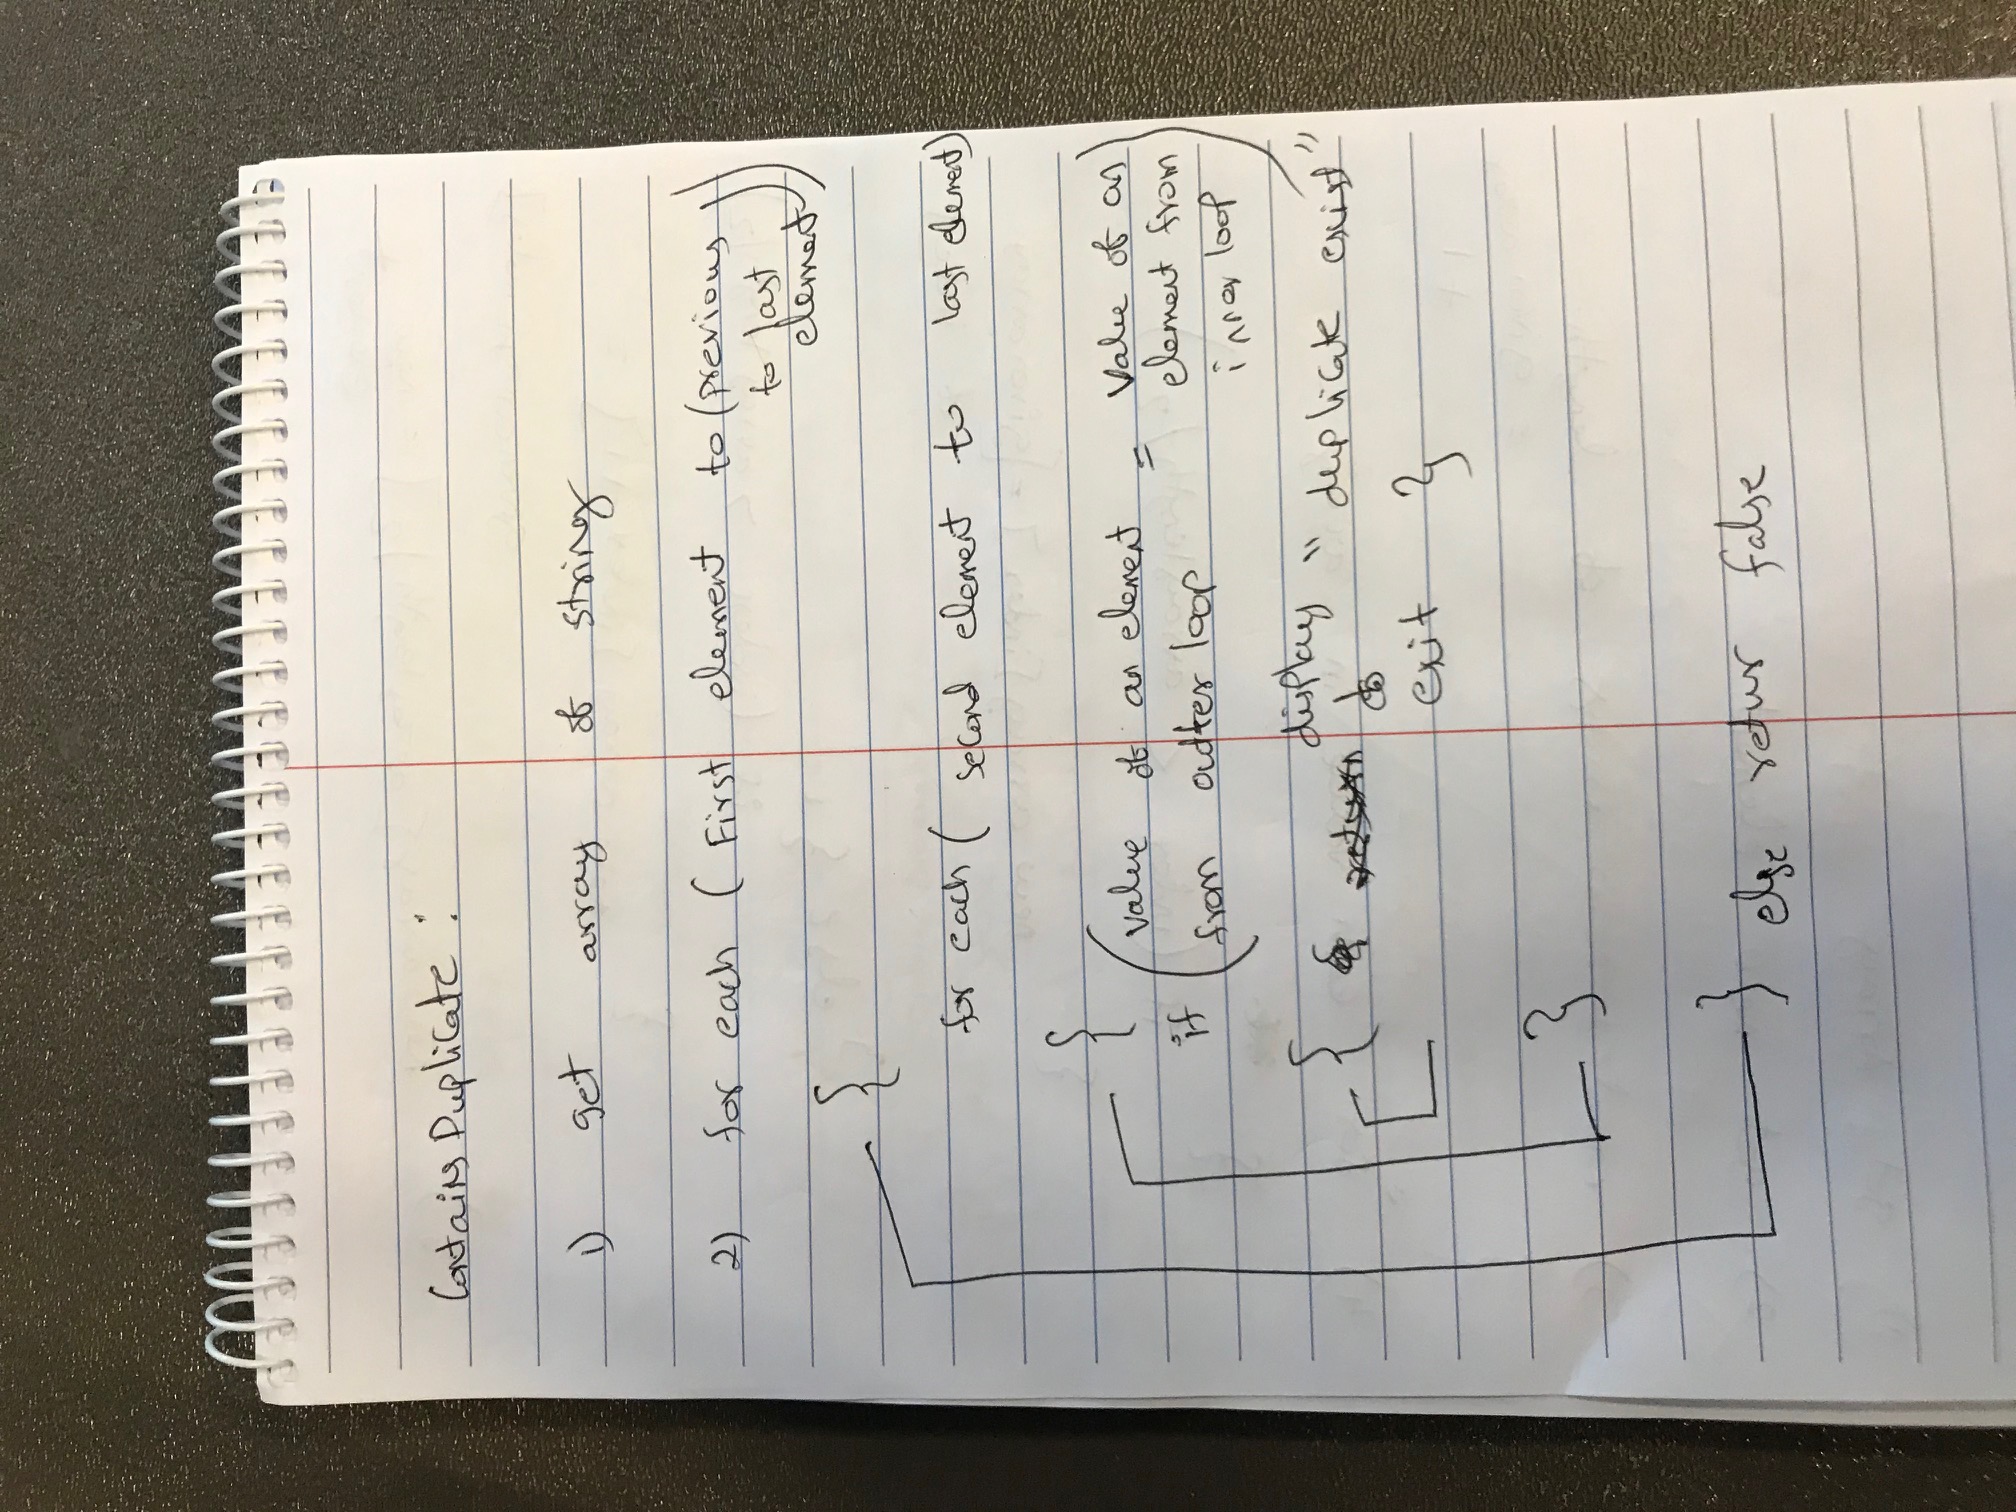 Contains Duplicate :
1) get array of string
2) for each ( First element to (previous
to last
element))
{
for each ( second element to last element)
{
if (value of an element = value of an
from outter loop element from
inner loop)
{ display " duplicate exist"
&
exit }
}
} else retur false